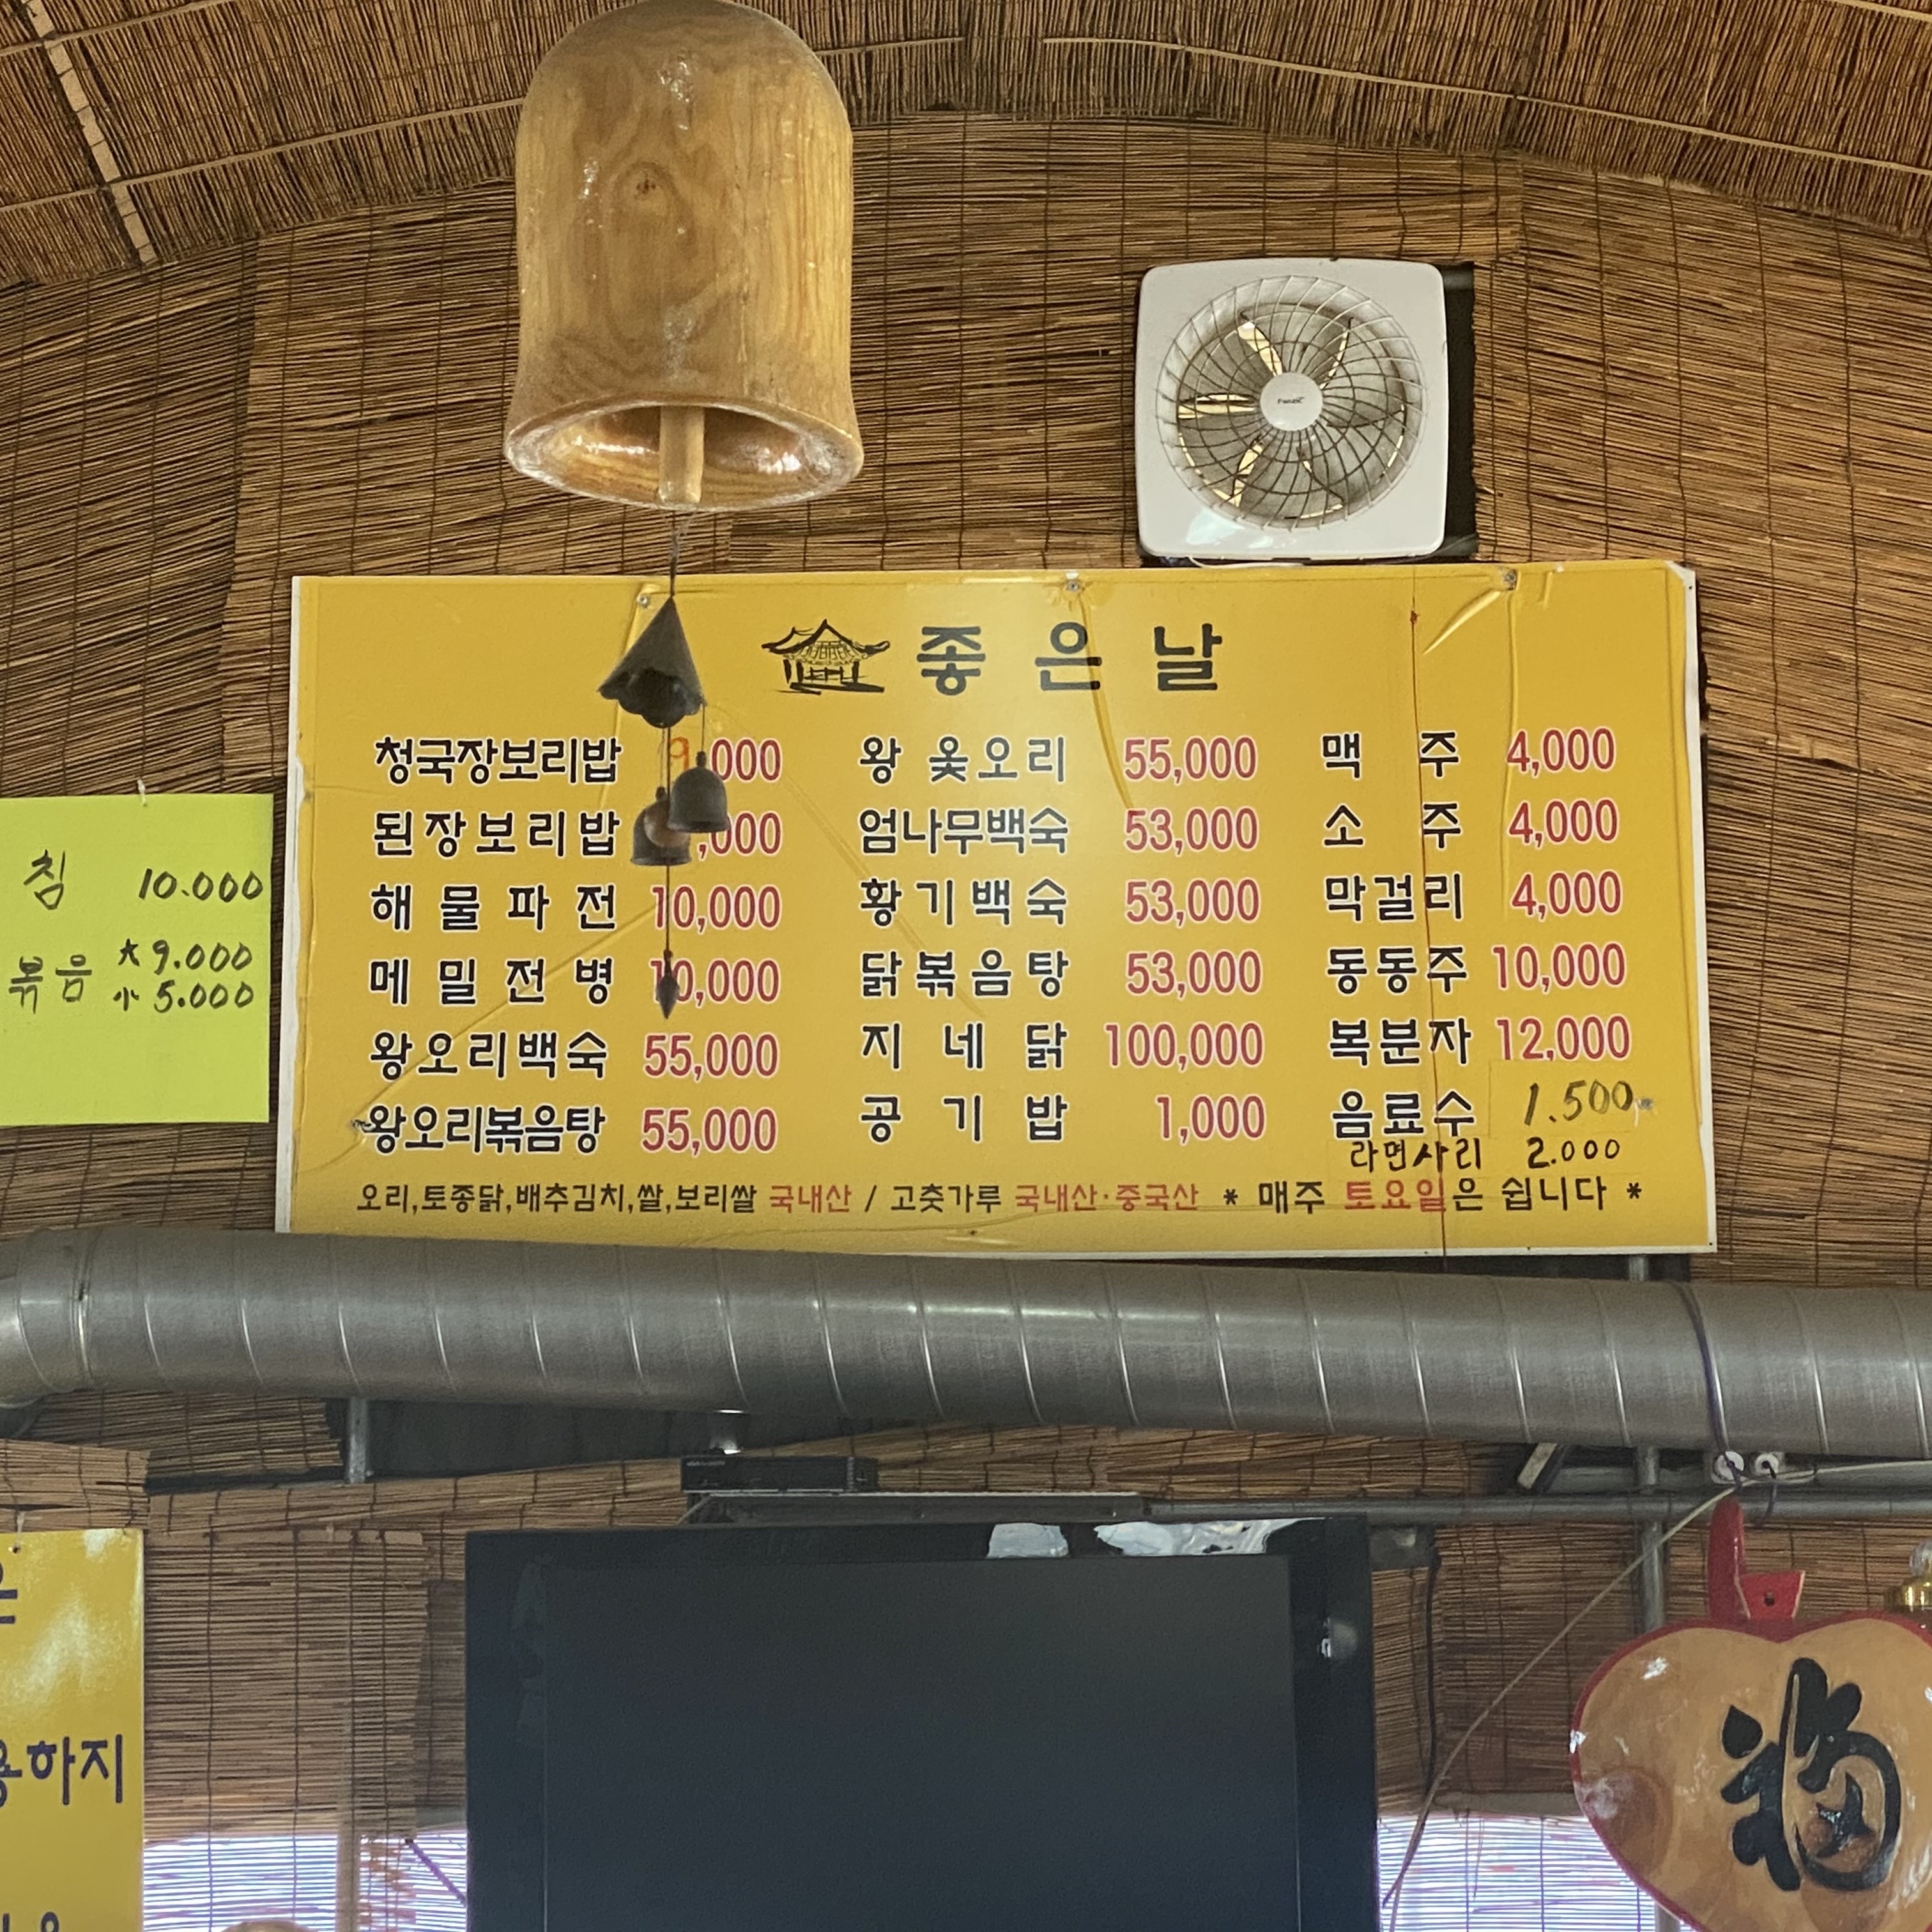 좋은날
청국장보리밥 9,000
된장보리밥 ,000
해물파전 10,000
메밀전병 10,000
왕오리백숙 55,000
왕오리볶음탕 55,000
왕 옻오리 55,000
엄나무백숙 53,000
황기백숙 53,000
닭볶음탕 53,000
지네닭 100,000
공기밥 1,000
맥주 4,000
소주 4,000
막걸리 4,000
동동주 10,000
복분자 12,000
음료수 1.500
라면사리 2.000
오리,토종닭,배추김치,쌀,보리쌀 국내산 / 고춧가루 국내산·중국산 * 매주 토요일은 쉽니다 *
침 10.000
볶음 大 9.000
小 5.000
하지
福